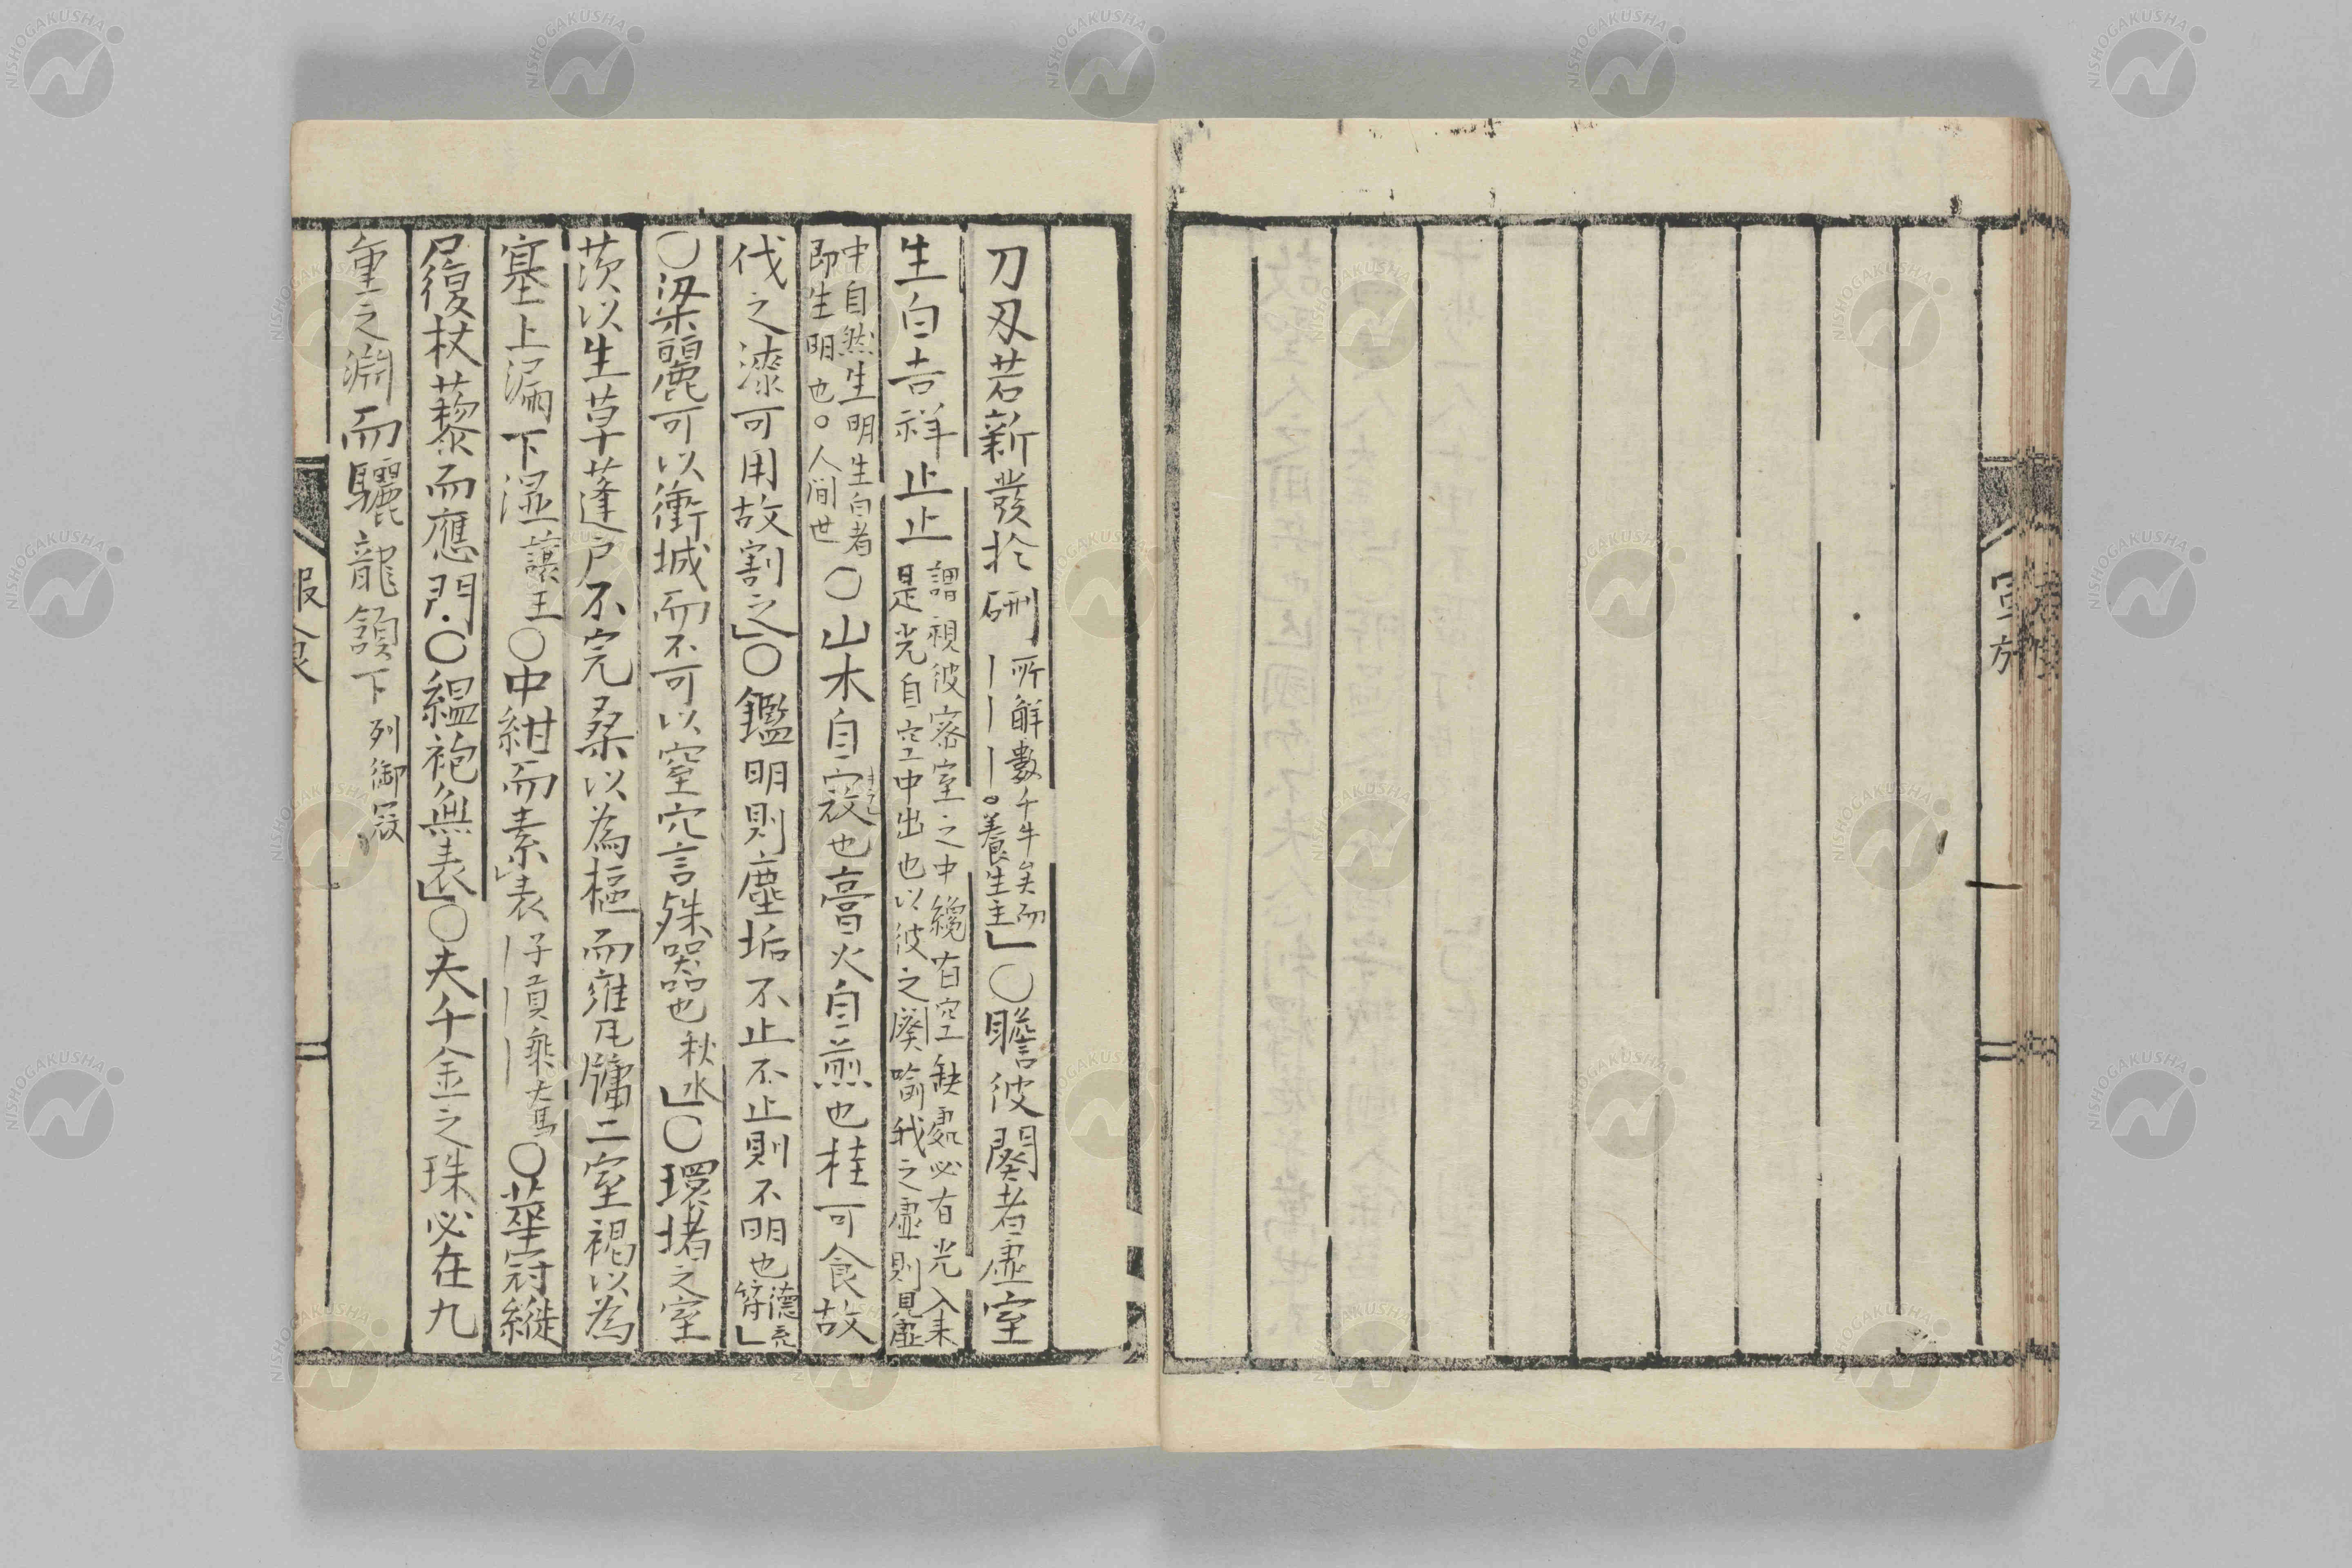 刀刄若新發扵硎 所解數千牛矣而｜｜｜｜。養生主」○瞻彼闋者虚室
生白吉祥止止 謂視彼密室之中纔有空缺處必有光入来是光自空中出也以彼之闋喻我之虚則見虚
中自然生明生白者即生明也。人間世○山木自寇也膏火自煎也桂可食故
伐之漆可用故割之」○鑑明則塵垢不止不止則不明也 德充符」
○梁麗可以衝城而不可以窒穴言殊器也 秋水」○環堵之室
茨以生草蓬户不完桑以為樞而雍凡牖二室褐以為
塞上漏下濕 譲王○中紺而素」表 子貢乗大馬｜｜｜○華冠縰
履杖藜而應門・○緼袍無表」○夫千金之珠必在九
重之淵而驪龍頷下 列御冦
服食